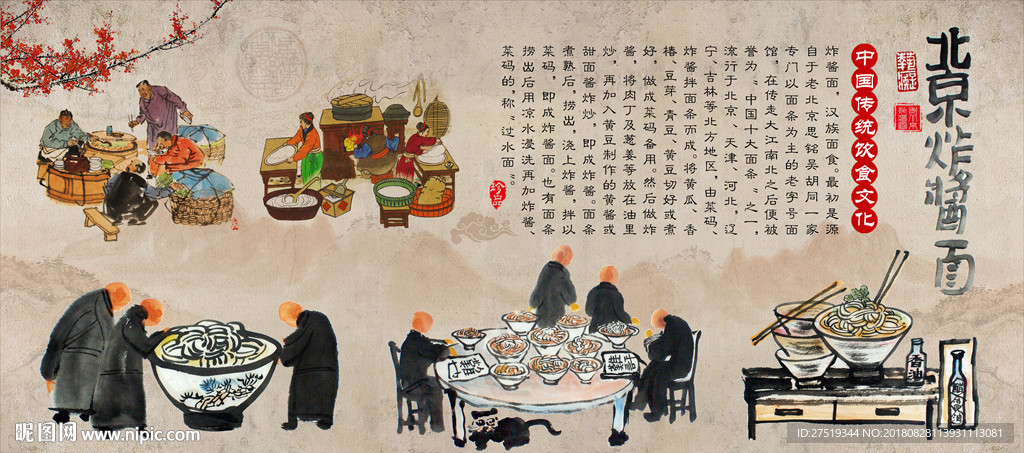 北京炸酱面
中国传统饮食文化
炸酱面，汉族面食。最初是源
自于老北京思铭吴胡同一家
专门以面条为主的老字号面
馆，在传走大江南北之后便被
誉为“中国十大面条”之一，
流行于北京、天津、河北，辽
宁、吉林等北方地区，由菜码、
炸酱拌面条而成。将黄瓜、香
椿、豆芽、青豆、黄豆切好或煮
好，做成菜码备用。然后做炸
酱，将肉丁及葱姜等放在油里
炒，再加入黄豆制作的黄酱或
甜面酱炸炒，即成炸酱。面条
煮熟后，捞出，浇上炸酱，拌以
菜码，即成炸酱面。也有面条
捞出后用凉水浸洗再加炸酱、
菜码的，称“过水面”。
珍品
香油
昵图网 www.nipic.com
ID:27519344 NO:20180828113931113081